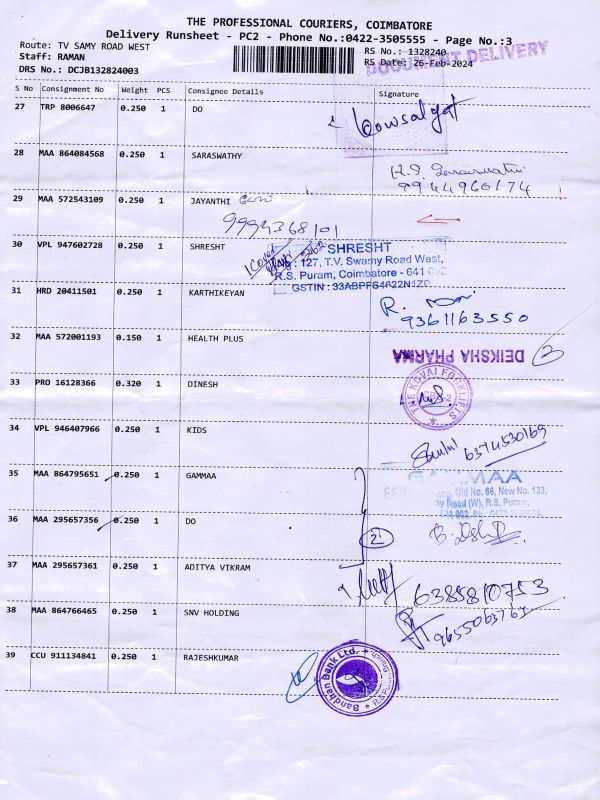 THE PROFESSIONAL COURIERS, COIMBATORE
Delivery Runsheet - PC2 - Phone No.:0422-3505555 - Page No.:3
Route: TV SAMY ROAD WEST
RS No.: 1328240
Staff: RAMAN
RS Date: 26-Feb-2024
DOCUMENT DELIVERY
DRS No.: DCJB132824003
S No Consignment No Weight PCS Consignee Details Signature
27 TRP 8006647 0.250 1 DO
28 MAA 864084568 0.250 1 SARASWATHY
9944960174
29 MAA 572543109 0.250 1 JAYANTHI
9994368101
30 VPL 947602728 0.250 1 SHRESHT
SHRESHT
127, T.V. Swamy Road West,
R.S. Puram, Coimbatore - 641 002
GSTIN : 33ABPFS4622N1ZP
31 HRD 20411501 0.250 1 KARTHIKEYAN
9361163550
32 MAA 572001193 0.150 1 HEALTH PLUS
DEIKSHA PHARMA
33 PRO 16128366 0.320 1 DINESH
THE KOVAI FORKLIFTS
34 VPL 946407966 0.250 1 KIDS
6374530169
35 MAA 864795651 0.250 1 GAMMAA
GAMMAA
Old No. 66, New No. 133,
Road (W), R.S. Puram,
36 MAA 295657356 0.250 1 DO
2
37 MAA 295657361 0.250 1 ADITYA VIKRAM
6385810753
38 MAA 864766465 0.250 1 SNV HOLDING
39 CCU 911134841 0.250 1 RAJESHKUMAR
Bandhan Bank Ltd.